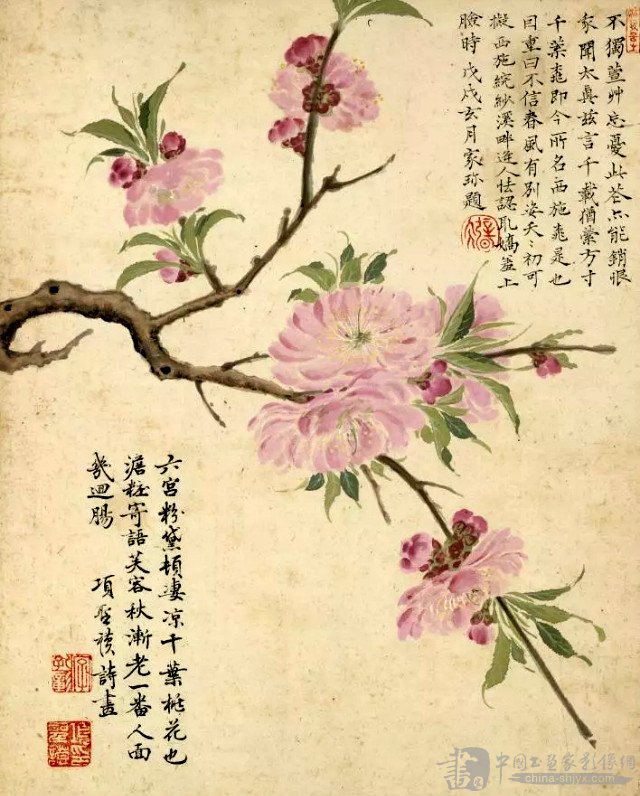 不獨萱艸忘憂此花亦能銷恨
家聞太真兹言千載猶縈方寸
千葉桃即今所名西施桃是也
因重曰不信春風有別姿夭〻初可
擬西施浣紗溪畔逢人怯認取嬌羞上
臉時 戊戌玄月家珍題
六宮粉黛頓凄凉千葉桃花也
澹粧寄語芙容秋漸老一番人面
幾迴腸
項聖謨詩畫
中國書畫家影像網
china-shjyx.com